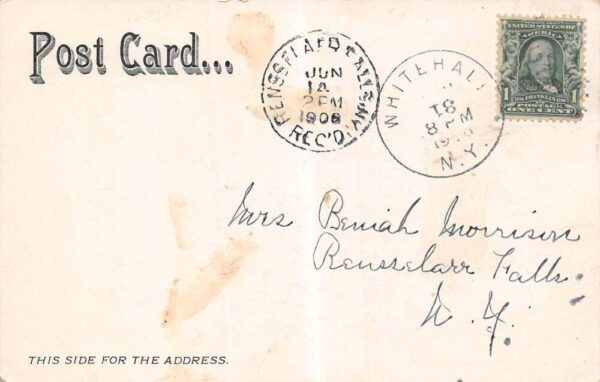 Post Card...
RENSSELAER FALLS N.Y.
JUN
14
2PM
1906
REC'D.
WHITEHALL
18
8 PM
N.Y.
UNITED STATES OF
AMERICA
1
FRANKLIN
1
ONE CENT
Mrs Beniah Morrison
Rensselarr Falls.
N. Y.
THIS SIDE FOR THE ADDRESS.